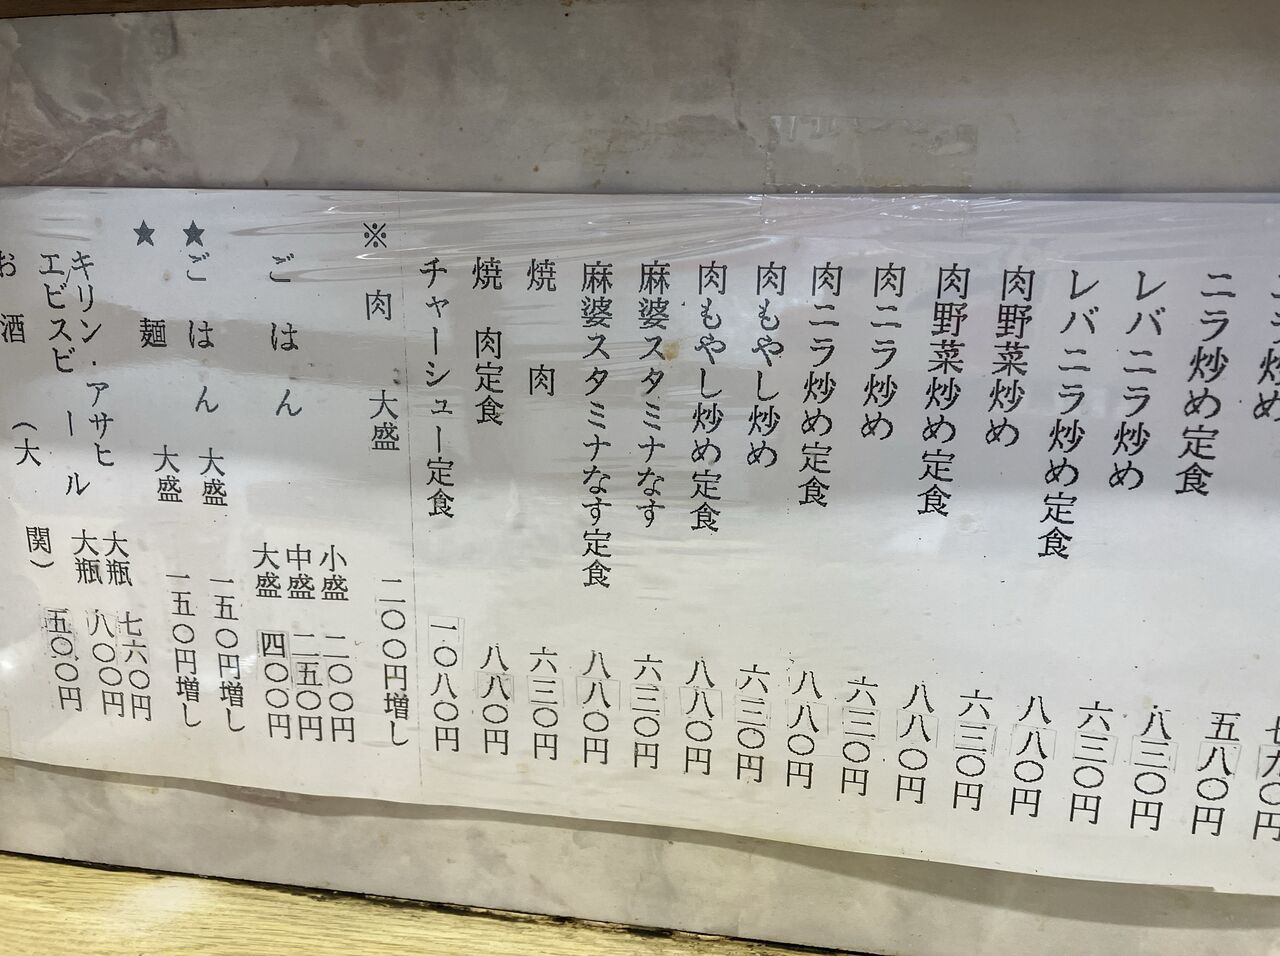 ニラ炒め 五八〇円
ニラ炒め定食 八三〇円
レバニラ炒め 六三〇円
レバニラ炒め定食 八八〇円
肉野菜炒め 六三〇円
肉野菜炒め定食 八八〇円
肉ニラ炒め 六三〇円
肉ニラ炒め定食 八八〇円
肉もやし炒め 六三〇円
肉もやし炒め定食 八八〇円
麻婆スタミナなす 六三〇円
麻婆スタミナなす定食 八八〇円
焼 肉 六三〇円
焼 肉定食 八八〇円
チャーシュー定食 一〇八〇円
※ 肉 大盛 二〇〇円増し
ごはん 小盛 二〇〇円
中盛 二五〇円
大盛 四〇〇円
★ごはん 大盛 一五〇円増し
★麺 大盛 一五〇円増し
キリン・アサヒ 大瓶 七六〇円
エビスビール 大瓶 八〇〇円
お酒 (大関) 五〇〇円